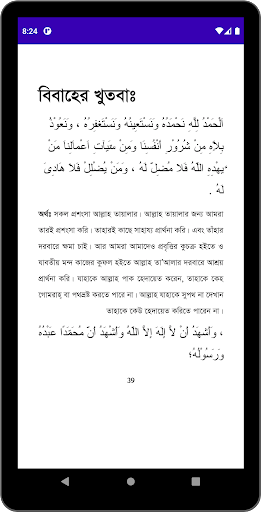 8:24
বিবাহের খুতবাঃ
اَلْحَمْدُ لِلّٰهِ نَحْمَدُهُ وَنَسْتَعِيْنُهُ وَنَسْتَغْفِرُهُ ، وَنَعُوْذُ
بِاللهِ مِنْ شُرُوْرِ أَنْفُسِنَا وَمِنْ سَيِّئَاتِ أَعْمَالِنَا مَنْ
يَهْدِهِ اللهُ فَلاَ مُضِلَّ لَهُ ، وَمَنْ يُضْلِلْ فَلاَ هَادِىَ
لَهُ .
অর্থঃ সকল প্রশংসা আল্লাহ তায়ালার। আল্লাহ তায়ালার জন্য আমরা
তারই প্রশংসা করি। তাহারই কাছে সাহায্য প্রার্থনা করি। এবং তাঁহার
দরবারে ক্ষমা চাই। আর আমরা আমাদেও প্রবৃত্তির কুচক্র হইতে ও
যাবতীয় মন্দ কাজের কুফল হইতে আল্লাহ তা'আলার দরবারে আশ্রয়
প্রার্থনা করি। যাহাকে আল্লাহ পাক হেদায়েত করেন, তাহাকে কেহ
গোমরাহ্ বা পথভ্রষ্ট করতে পারে না। আল্লাহ যাহাকে সুপথ না দেখান
তাহাকে কেউ হেদায়েত করিতে পারেন না।
، وَأَشْهَدُ أَنْ لاَ إِلهَ إِلاَّ اللهُ وَأَشْهَدُ أَنَّ مُحَمَّدًا عَبْدُهُ
وَرَسُوْلُهُ؛
39